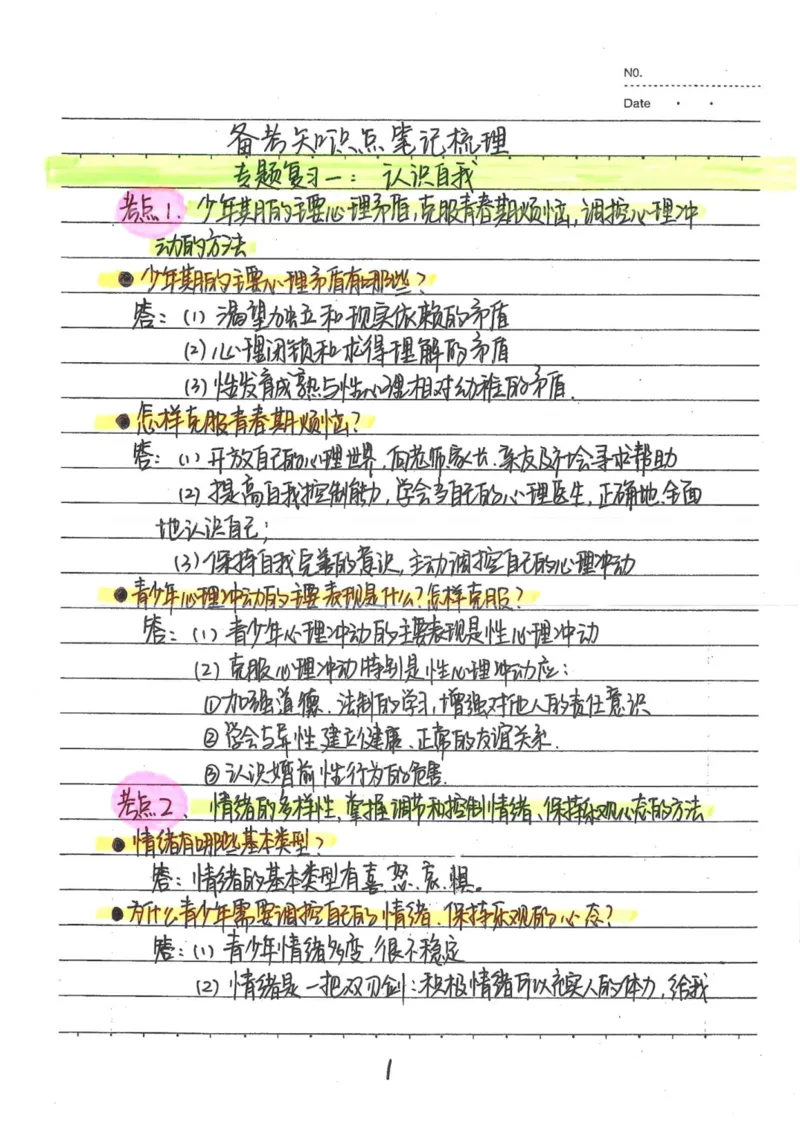 NO.
Date
备考知识点笔记梳理
专题复习一：认识自我
考点1、少年期的主要心理矛盾,克服青春期烦恼,调控心理冲
动的方法
●少年期的主要心理矛盾有哪些?
答：(1)渴望独立和现实依赖的矛盾
(2)心理闭锁和求得理解的矛盾
(3)性发育成熟与性心理相对幼稚的矛盾.
●怎样克服青春期烦恼?
答：(1)开放自己的心理世界,向老师家长、亲友及社会寻求帮助
(2)提高自我控制能力,学会当自己的心理医生,正确地、全面
地认识自己;
(3)保持自我完善的意识,主动调控自己的心理冲动
●青少年心理冲动的主要表现是什么?怎样克服?
答：(1)青少年心理冲动的主要表现是性心理冲动
(2)克服心理冲动特别是性心理冲动应:
①加强道德、法制的学习,增强对他人的责任意识
②学会与异性建立健康、正常的友谊关系.
③认识婚前性行为的危害.
考点2、情绪的多样性,掌握调节和控制情绪、保持乐观心态的方法
●情绪有哪些基本类型?
答：情绪的基本类型有喜、怒、哀、惧。
●为什么青少年需要调控自己的情绪、保持乐观的心态?
答：(1)青少年情绪多变,很不稳定
(2)情绪是一把双刃剑:积极情绪可以充实人的体力,给我
1